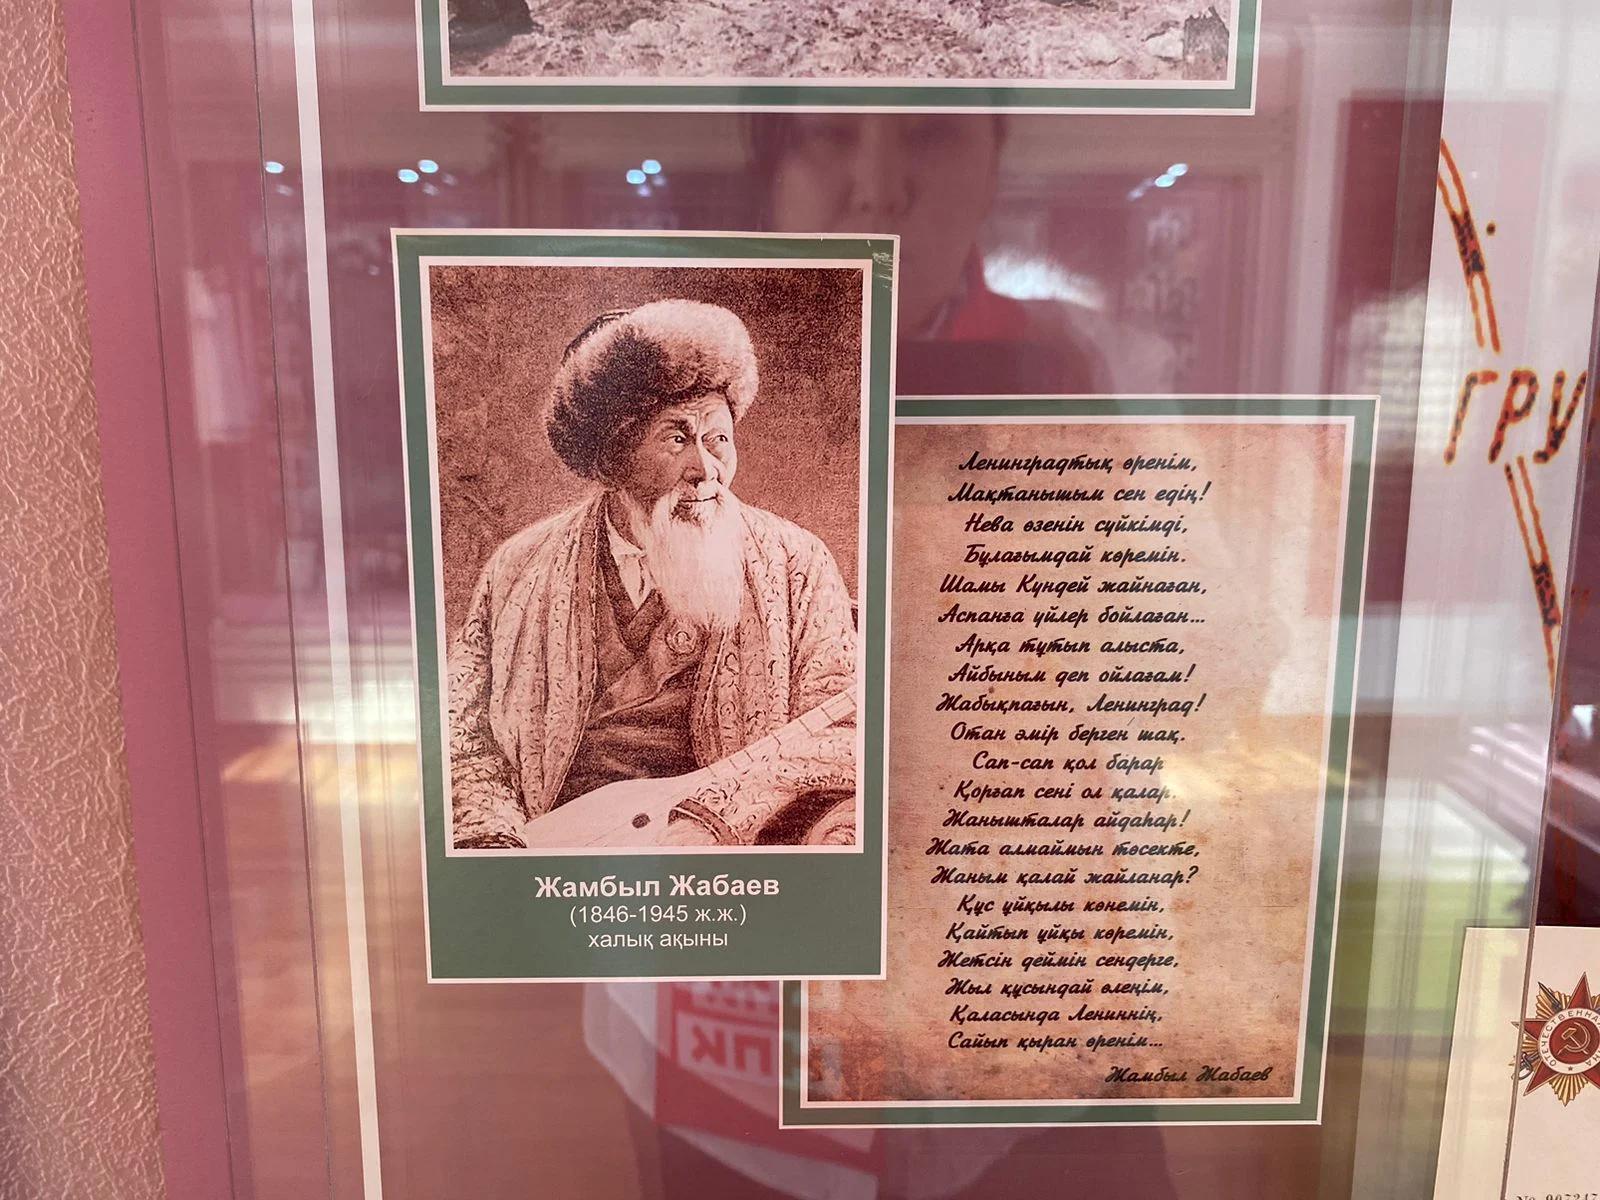 Жамбыл Жабаев
(1846-1945 ж.ж.)
халық ақыны
Ленинградтық өренім,
Мақтанышым сен едің!
Нева өзенін сүйкімді,
Бұлағымдай көремін.
Шамы Күндей жайнаған,
Аспанға үйлер бойлаған...
Арқа тұтып алыста,
Айбыным деп ойлағам!
Жабықпағын, Ленинград!
Отан әмір берген шақ.
Сап-сап қол барар
Қорғап сені ол қалар.
Жанышталар айдаһар!
Жата алмаймын төсекте,
Жаным қалай жайланар?
Құс ұйқылы көнемін,
Қайтып ұйқы көремін,
Жетсін деймін сендерге,
Жыл құсындай өлеңім,
Қаласында Лениннің,
Сайып қыран өренім...
Жамбыл Жабаев
ГРУ
ОТЕЧЕСТВЕННАЯ